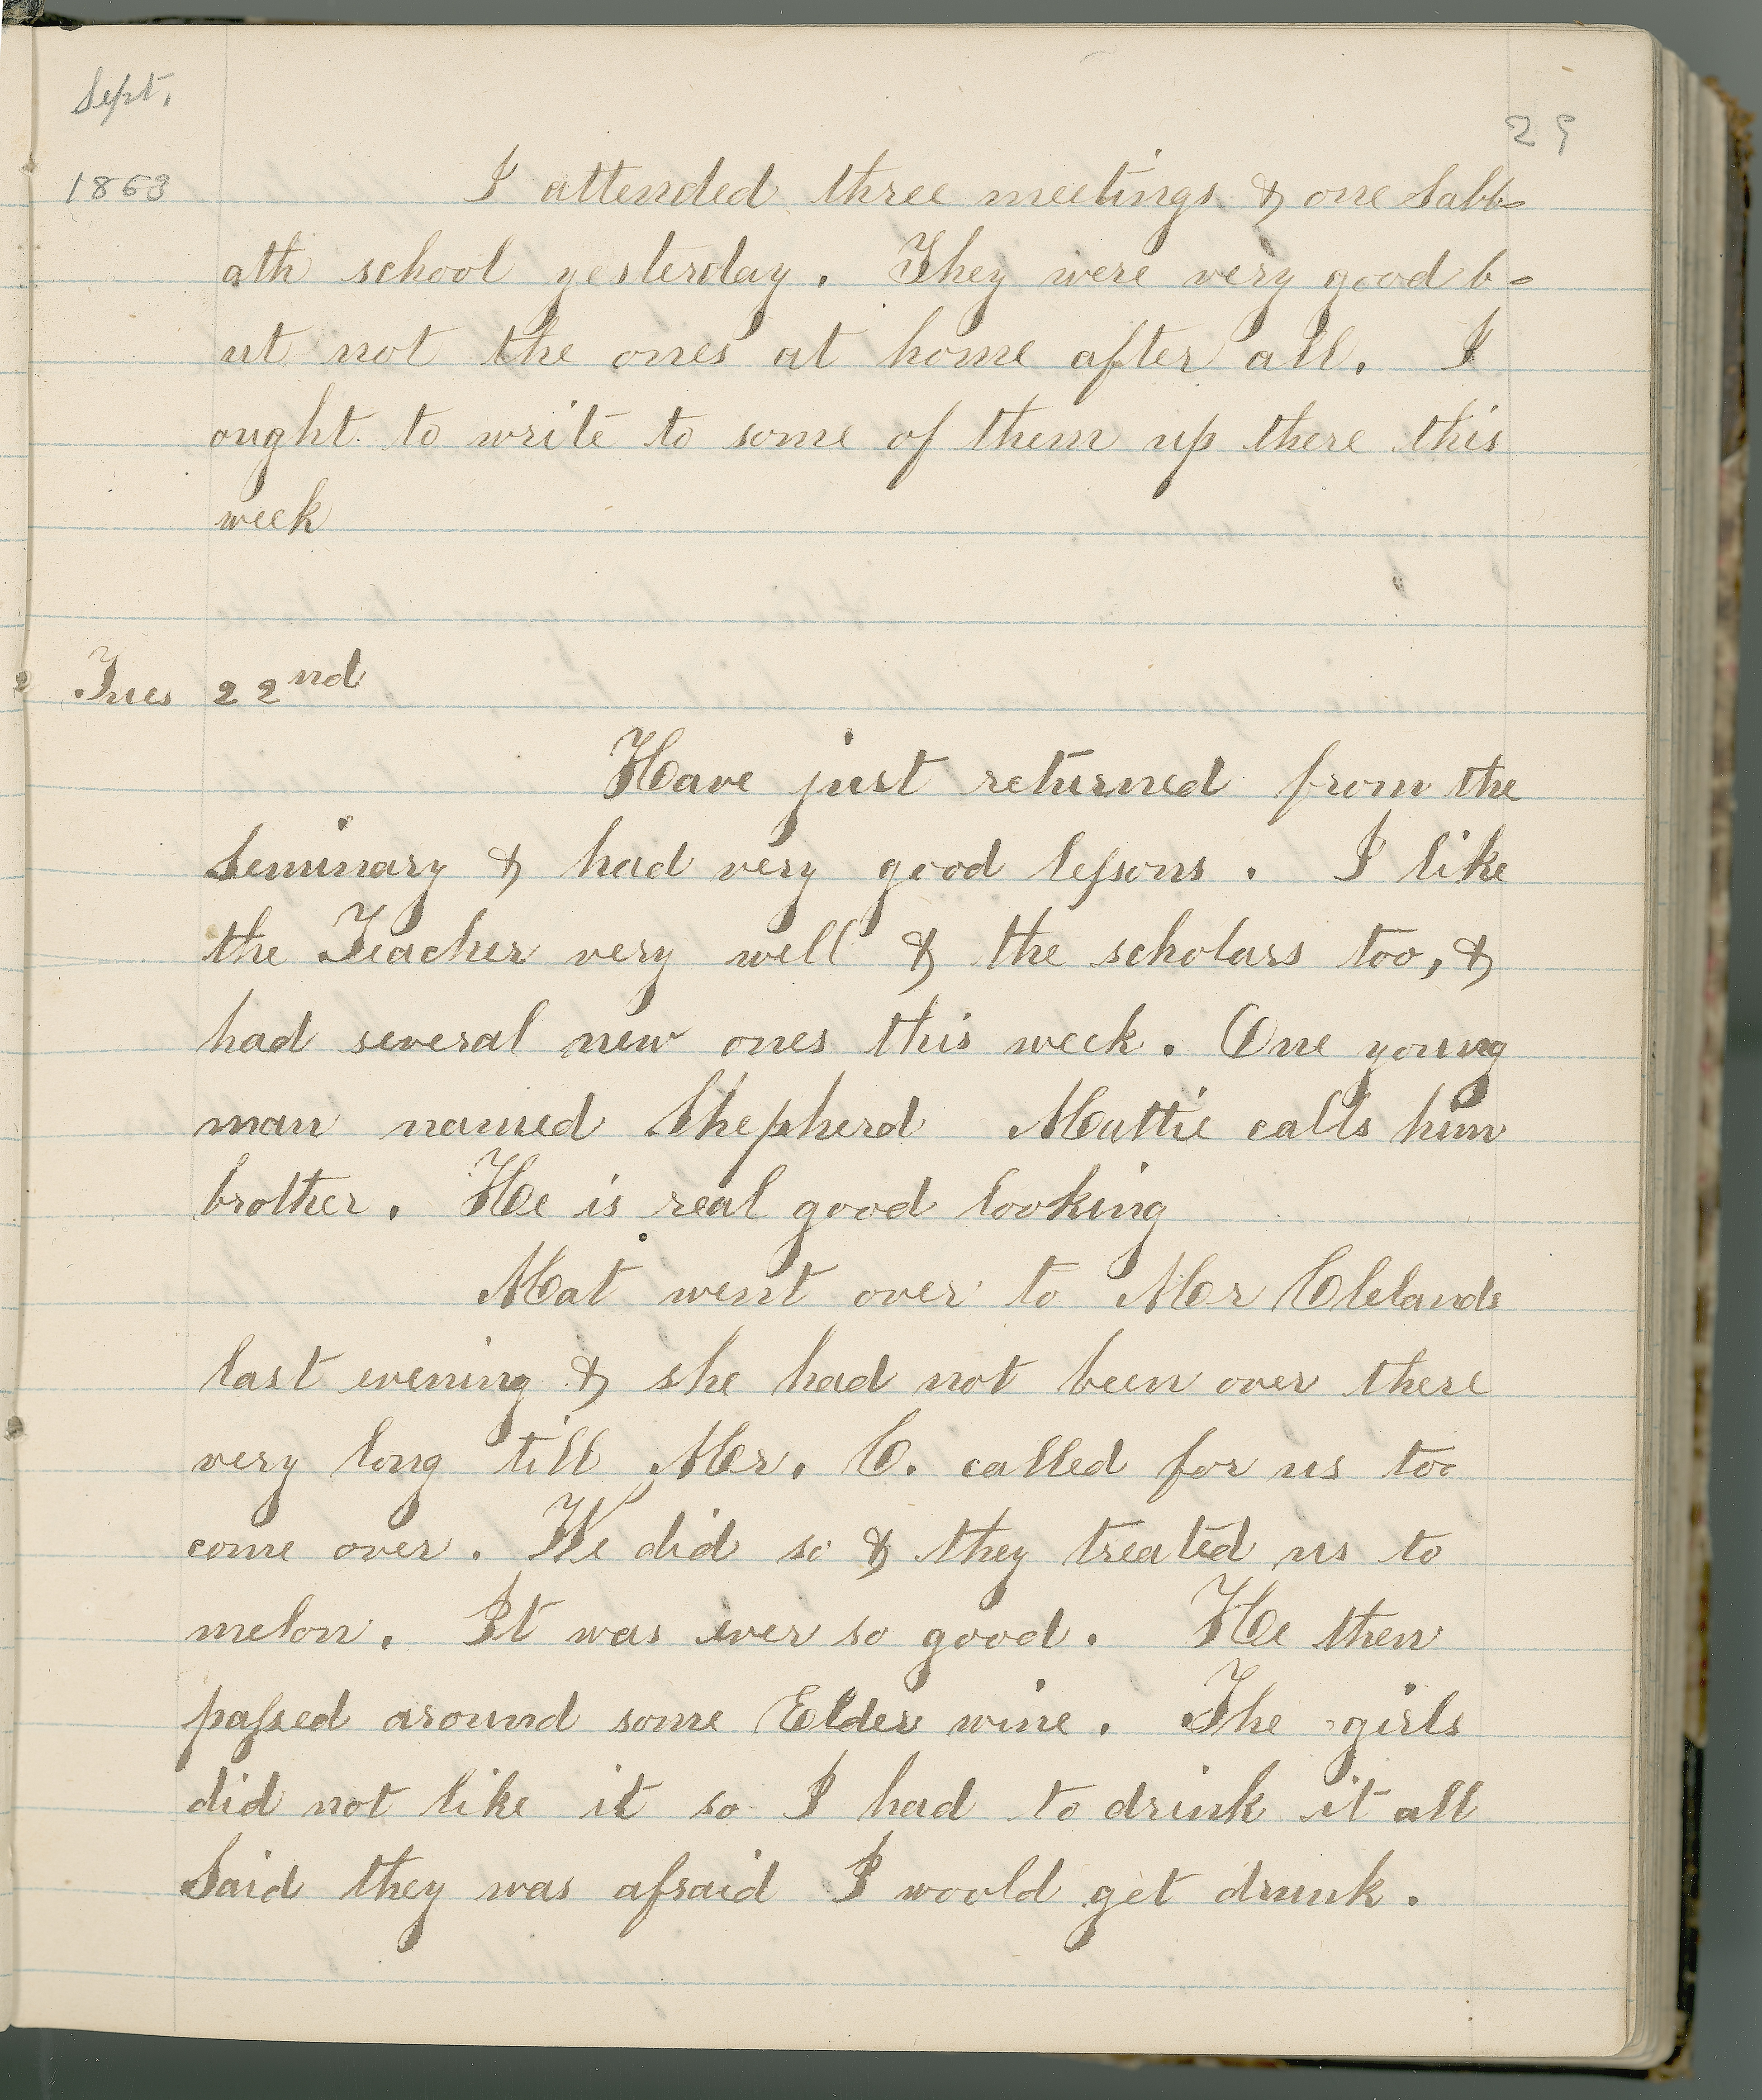 Sept.
29
1863
I attended three meetings & one Sabb-
ath school yesterday. They were very good b-
ut not the ones at home after all. I
ought to write to some of them up there this
week
Tues 22nd
Have just returned from the
Seminary & had very good lessons. I like
the Teacher very well & the scholars too, &
had several new ones this week. One young
man named Shepherd Mattie calls him
brother. He is real good looking
Mat went over to Mr Clelands
last evening & she had not been over there
very long till Mr. C. called for us too
come over. We did so & they treated us to
melon. It was ever so good. He then
passed around some Elder wine. The girls
did not like it so I had to drink it all
Said they was afraid I would get drunk.